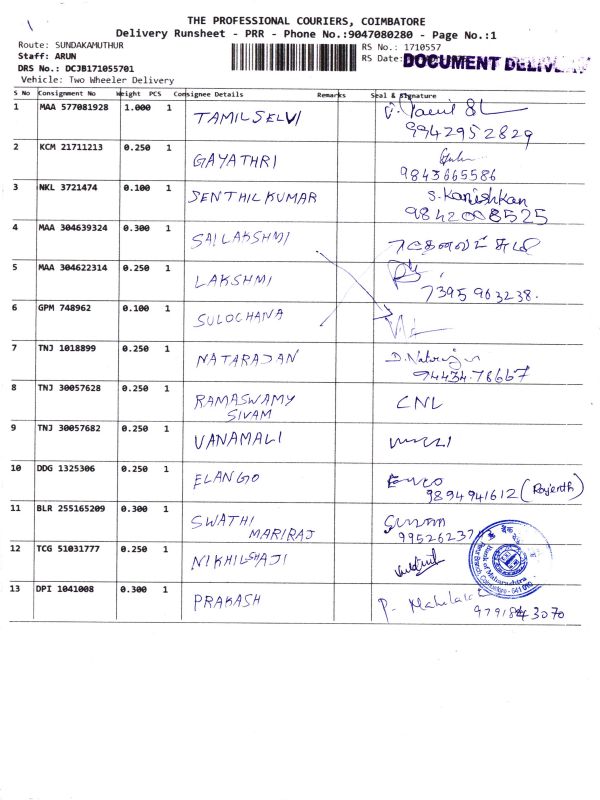 THE PROFESSIONAL COURIERS, COIMBATORE
Delivery Runsheet - PRR - Phone No.:9047080280 - Page No.:1
Route: SUNDAKAMUTHUR
RS No.: 1710557
Staff: ARUN
RS Date:
DOCUMENT
DRS No.: DCJB171055701
Vehicle: Two Wheeler Delivery
S No Consignment No Weight PCS Consignee Details Remarks Seal & Signature
1 MAA 577081928 1.000 1 TAMILSELVI
9942952829
2 KCM 21711213 0.250 1 GAYATHRI
9843665586
3 NKL 3721474 0.100 1 SENTHILKUMAR S. Kanishkan
9842008525
4 MAA 304639324 0.300 1 SAILAKSHMI
5 MAA 304622314 0.250 1 LAKSHMI
7395963238.
6 GPM 748962 0.100 1 SULOCHANA
7 TNJ 1018899 0.250 1 NATARAJAN
94434.78667
8 TNJ 30057628 0.250 1 RAMASWAMY CNL
SIVAM
9 TNJ 30057682 0.250 1 VANAMALI
10 DDG 1325306 0.250 1 ELANGO
9894941612
11 BLR 255165209 0.300 1 SWATHI
MARIRAJ
99526237
12 TCG 51031777 0.250 1 NIKHILSHAJI
Bank of Maharashtra
13 DPI 1041008 0.300 1 PRAKASH